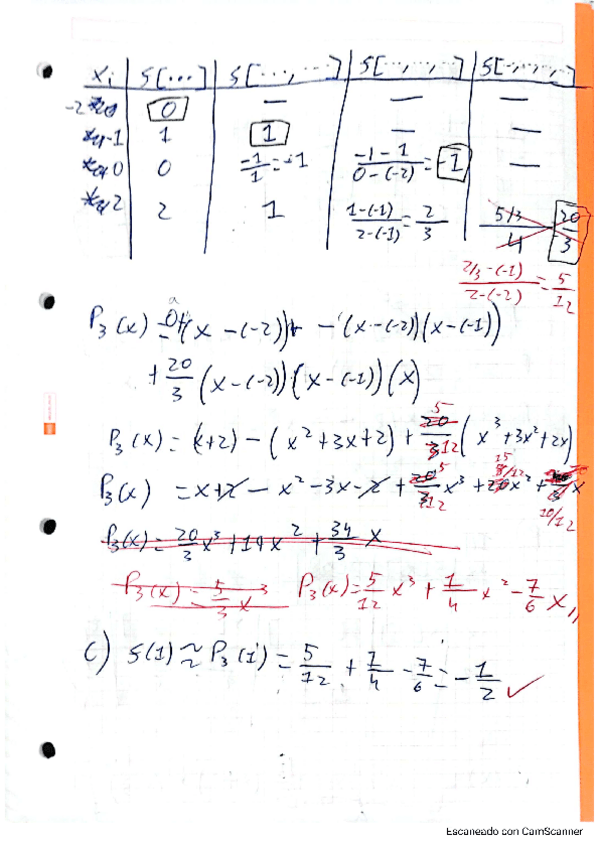 xi | f[...] | f[...,...] | f[..,..,..] | f[-,-,-,-]
-2 | 0 | — | — | —
-1 | 1 | 1 | — | —
0 | 0 | -1/1 = -1 | (-1-1)/(0-(-2)) = -1 | —
2 | 2 | 1 | (1-(-1))/(2-(-1)) = 2/3 | (5/3)/4 20/3
(2/3-(-1))/(2-(-2)) = 5/12
P3(x) = 0+(x-(-2))+ -(x-(-2))(x-(-1))
+ 20/3 (x-(-2))(x-(-1))(x)
P3(x) = (x+2) - (x²+3x+2) + 5/12 (x³+3x²+2x)
P3(x) = x+2 - x² - 3x - 2 + 5/12 x³ + 15/12 x² + 10/12 x
P3(x) = 20/3 x³ + 19x² + 34/3 x
P3(x) = 5/3 x³ P3(x) = 5/12 x³ + 1/4 x² - 7/6 x,,
c) f(1) ≈ P3(1) = 5/12 + 1/4 - 7/6 = -1/2 ✓
Escaneado con CamScanner